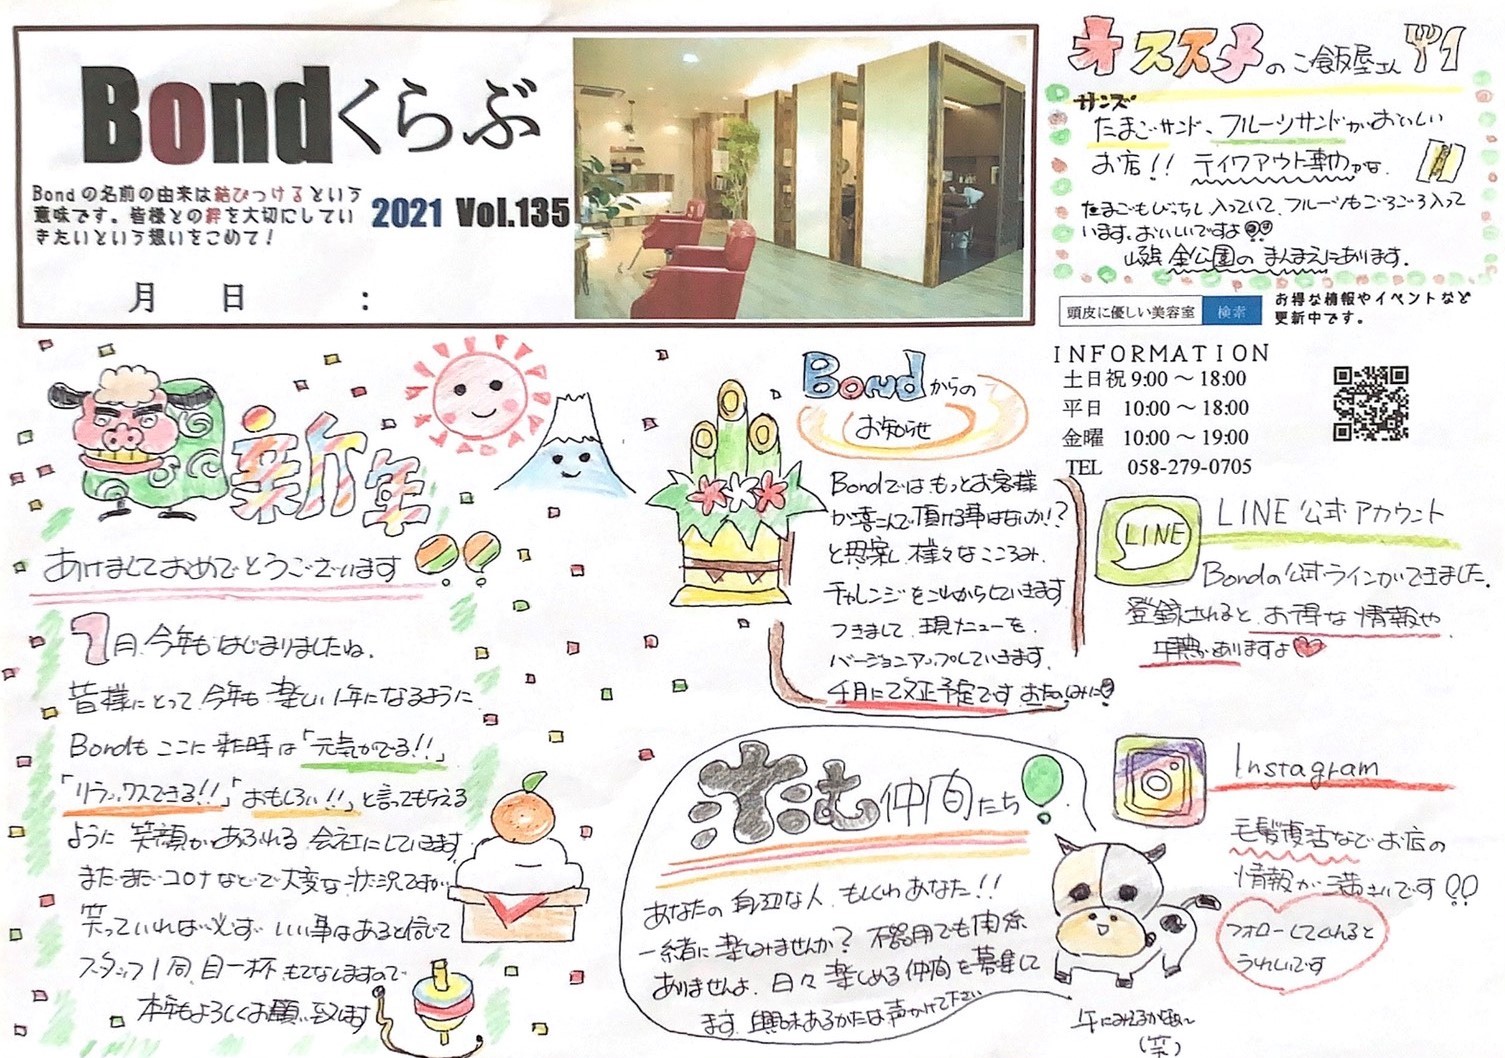 Bondくらぶ
Bondの名前の由来は結びつけるという
意味です。皆様との絆を大切にしてい
きたいという想いをこめて！
2021 Vol.135
月 日 :
オススメのご飯屋さん
サンズ
たまごサンド、フルーツサンドがおいしい
お店！！ テイクアウト専門かな。
たまごもびっちし入っていて、フルーツもごろごろ入って
います。おいしいですよ
公園のまんまえにあります。
頭皮に優しい美容室 検索
お得な情報やイベントなど
更新中です。
INFORMATION
土日祝 9:00 〜 18:00
平日 10:00 〜 18:00
金曜 10:00 〜 19:00
TEL 058-279-0705
新年
あけましておめでとうございます
1月。今年もはじまりましたね。
皆様にとって今年も楽しい1年になるように
Bondもここに来た時は「元気がでる！！」
「リラックスできる！！」「おもしろい！！」と言ってもらえる
ように 笑顔があふれる 会社にしていきます。
まだまだコロナなどで大変な状況ですが
笑っていれば必ず いい事はあると信じて
スタッフ1同、目一杯 もてなしますので
本年もよろしくお願い致します
Bondからの
お知らせ
Bondでは もっとお客様
が喜こんで頂ける事はないか！？
と思案し 様々なこころみ、
チャレンジをこれからしていきます
つきまして、現メニューを、
バージョンアップしていきます。
4月に改正予定です おたのしみに！
LINE
LINE 公式アカウント
Bondの公式ラインができました。
登録されると お得な情報や
ありますよ
仲間たち
あなたの身辺な人、もしくはあなた！！
一緒に楽しみませんか？ 不器用でも関係
ありませんよ。日々楽しめる仲間を募集して
ます。興味あるかたは声かけて下さい
Instagram
毛髪復活などお店の
情報が満さいです！！
フォローしてくれると
うれしいです
牛にみえるかなぁ〜
(笑)